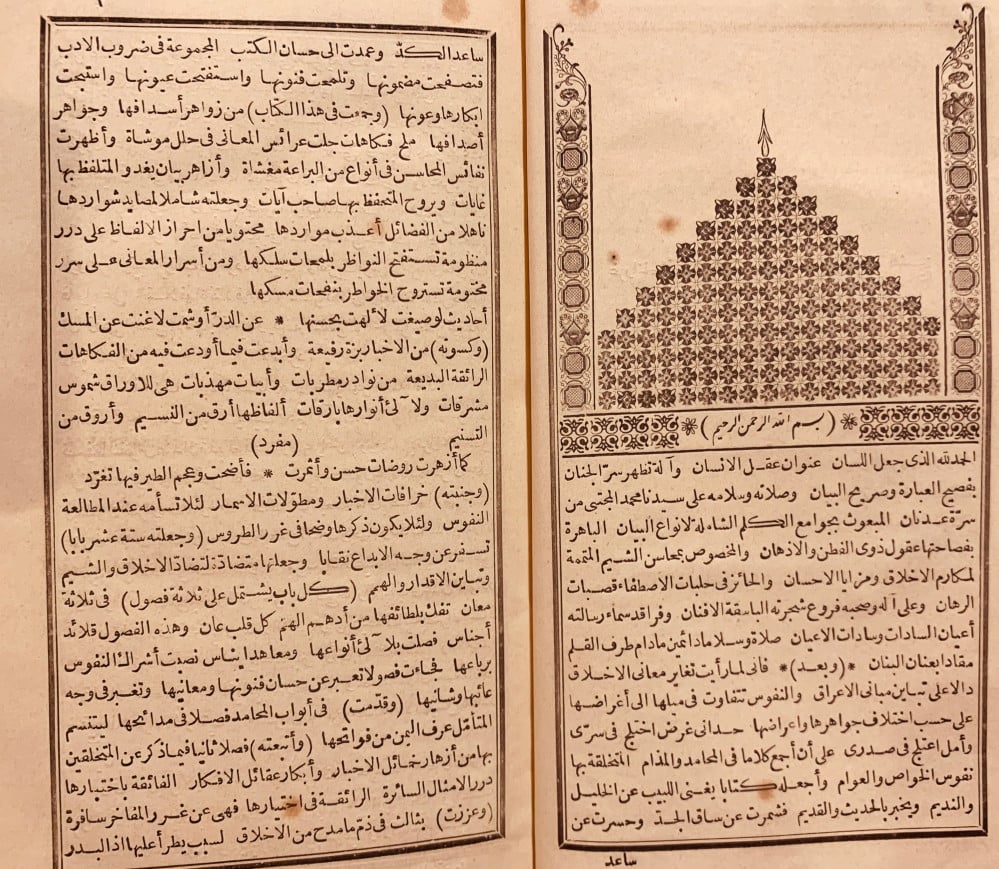 (بسم الله الرحمن الرحيم)
الحمد لله الذى جعل اللسان عنوان عقل الانسان وآلة تظهر سرّ الجنان
بفصيح العبارة وصريح البيان وصلاته وسلامه على سيدنا محمد المجتبى من
سرة عدنان المبعوث بجوامع الكلم الشاملة لانواع البيان الباهرة
بفصاحتها عقول ذوى الفطن والاذهان والمخصوص بمحاسن الشيم المتممة
لمكارم الاخلاق ومزايا الاحسان والحائز فى حلبات الاصطفاء قصبات
الرهان وعلى آله وصحبه فروع شجرته الباسقة الافنان وفراقد سماء رسالته
أعيان السادات وسادات الاعيان صلاة وسلاما دائمين مادام طرف القلم
مقادا بعنان البنان *(وبعد)* فانى لما رأيت تغاير معانى الاخلاق
دالا على تباين مبانى الاعراق والنفوس تتفاوت فى ميلها الى أغراضها
على حسب اختلاف جواهرها واعراضها حدانى غرض اختلج فى سرّى
وأمل اعتلج فى صدرى على أن أجمع كلاما فى المحامد والمذام المتخلقة بها
نفوس الخواص والعوام وأجعله كتابا يغنى اللبيب عن الخليل
والنديم ويخبر بالحديث والقديم فشمرت عن ساق الجدّ وحسرت عن
ساعد
ساعد الكدّ وعمدت الى حسان الكتب المجموعة فى ضروب الادب
فتصفحت مضمونها وتلمحت فنونها واستفتحت عيونها واستبحت
ابكارها وعونها (وجمعت فى هذا الكتاب) من زواهر أسدافها وجواهر
أصدافها ملح فكاهات جلت عرائس المعانى فى حلل موشاة وأظهرت
نفائس المحاسن فى أنواع من البراعة مغشاة وأزاهر بيان يغدو المتلفظ بها
غايات ويروح المتحفظ بها صاحب آيات وجعلته شاملا لمصايد شواردها
ناهلا من الفضائل أعذب مواردها محتويا من احراز الالفاظ على درر
منظومة تستفتح النواظر بلمحات سلكها ومن أسرار المعانى على سرر
مختومة تستروح الخواطر بنفحات مسكها
أحاديث لو صيغت لألهت بحسنها * عن الدرّ أو شمت لاغنت عن المسك
(وكسوته) من الاخبار بزة رفيعة وأبدعت فيما أودعت فيه من الفكاهات
الرائقة البديعة من نوادر مطربات وأبيات مهذبات هى للاوراق شموس
مشرقات ولآلئ أنوارها بارقات ألفاظها أرق من النسيم وأروق من
التسنيم (مفرد)
كما أزهرت روضات حسن وأثمرت * فأضحت وعجم الطير فيها تغرّد
(وجنبته) خرافات الاخبار ومطولات الاسمار لئلا تسأمه عند المطالعة
النفوس ولئلا يكون ذكرها وضحا فى غرر الطروس (وجعلته ستة عشر بابا)
تسفر عن وجه الابداع نقابا وجعلتها متضادّة لتضادّ الاخلاق والشيم
وتباين الاقدار والهمم (كل باب يشتمل على ثلاثة فصول) فى ثلاثة
معان تفك بلطائفها من أدهم الهمّ كل قلب عان وهذه الفصول قلائد
أجناس فصلت بلآلئ أنواعها ومعاهد ايناس نصبت أشراك النفوس
برباعها فجاءت فصولا تعبر عن حسان فنونها ومعانيها وتغبر فى وجه
عائبها وشانيها (وقدمت) فى أبواب المحامد فصلا فى مدائحها ليتنسم
المتأمّل عرف اليمن من فواتحها (وأتبعته) فصلا ثانيا فيما ذكر عن المتخلقين
بها من أزهار خمائل الاخبار وأبكار عقائل الافكار الفائقة باختبارها
درر الامثال السائرة الرائقة فى اختيارها فهى عن غرر المفاخر سافرة
(وعززت) بثالث فى ذمّ ما مدح من الاخلاق لسبب يطرأ عليها اذ البدر